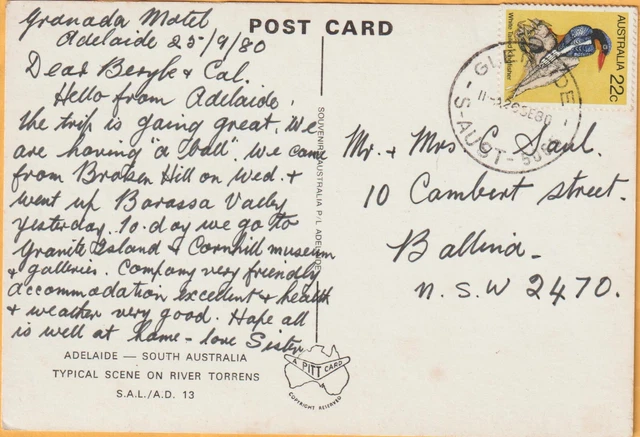 POST CARD
Granada Motel
Adelaide 25/9/80
Dear Beryle & Cal.
Hello from Adelaide,
the trip is going great. We
are having "a ball". We came
from Broken Hill on Wed. &
went up Barassa Valley
yesterday. To.day we go to
Granite Island & Cornhill museum
& galleries. Company very friendly
accommodation excellent & health
& weather very good. Hope all
is well at home - love Sister
ADELAIDE — SOUTH AUSTRALIA
TYPICAL SCENE ON RIVER TORRENS
S.A.L./A.D. 13
SOUVENIRS AUSTRALIA P/L ADELAIDE
A PITT CARD
COPYRIGHT RESERVED
AUSTRALIA 22c
White-Tailed Kingfisher
26SE80
S-AUST- 5065
Mr. & Mrs C Saul.
10 Cambert street.
Ballina-
N.S.W 2470.